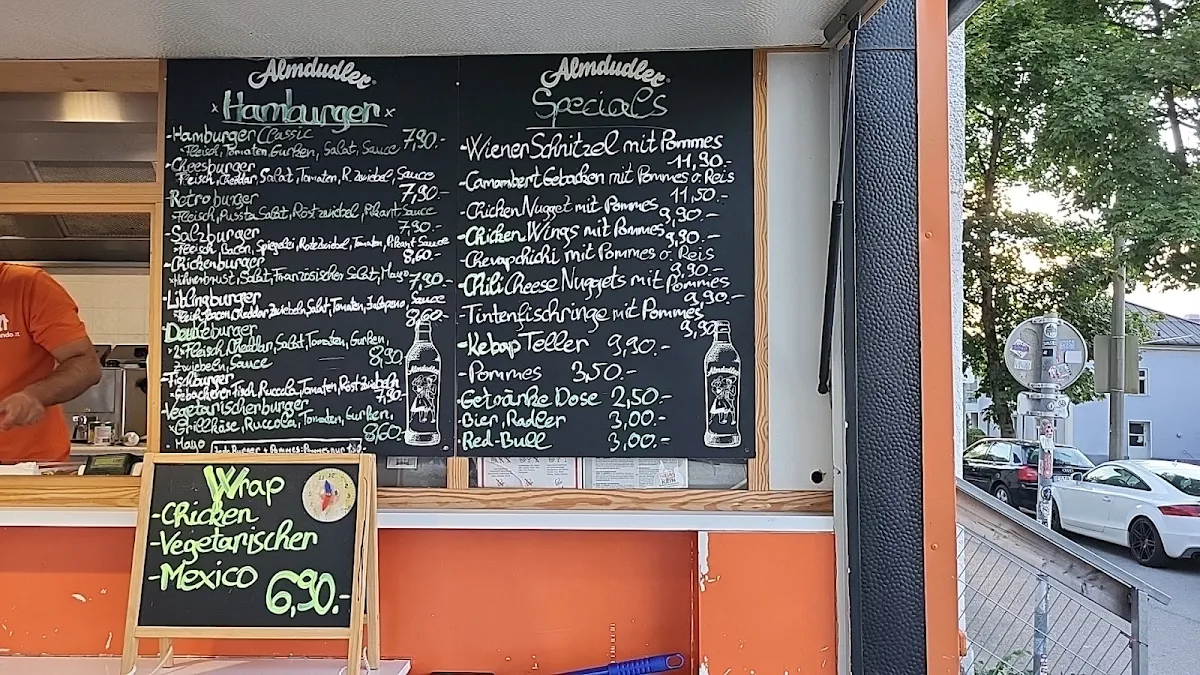 Almdudler
x Hamburger x
-Hamburger Classic 7,90.-
Fleisch, Tomaten, Gurken, Salat, Sauce
-Cheesburger
Fleisch, Cheddar, Salat, Tomaten, R.zwiebel, Sauce
7,90.-
-Retroburger
Fleisch, Pussta Salat, Röstzwiebel, Pikant Sauce
7,90.-
-Salzburger
Fleisch, Bacon, Spiegelei, Rotezwiebel, Tomaten, Pikant Sauce
8,60.-
-Chickenburger
Hühnerbrust, Salat, Französischer Salat, Mayo 7,90.-
-Liblingburger
Fleisch, Bacon, Cheddar, Zwiebeln, Salat, Tomaten, Jalapeno, Sauce
8,60.-
2x Fleisch, Cheddar, Salat, Tomaten, Gurken,
Zwiebeln, Sauce 8,90.-
-Fischburger
Gebackener Fisch, Ruccola, Tomaten, Röstzwiebeln
7,90.-
-Vegetarischerburger
Grillkäse, Ruccola, Tomaten, Gurken,
Mayo 8,60.-
Almdudler
Almdudler
Specials
-Wiener Schnitzel mit Pommes
11,90.-
-Camambert Gebacken mit Pommes o. Reis
11,50.-
-Chicken Nugget mit Pommes
9,90.-
-Chicken Wings mit Pommes
9,90.-
-Chevapchichi mit Pommes o. Reis
9,90.-
-Chili Cheese Nuggets mit Pommes
9,90.-
-Tintenfischringe mit Pommes
9,90.-
-Kebap Teller 9,90.-
-Pommes 3,50.-
-Getränke Dose 2,50.-
-Bier, Radler 3,00.-
-Red-Bull 3,00.-
Almdudler
Wrap
-Chicken
-Vegetarischer
-Mexico 6,90.-